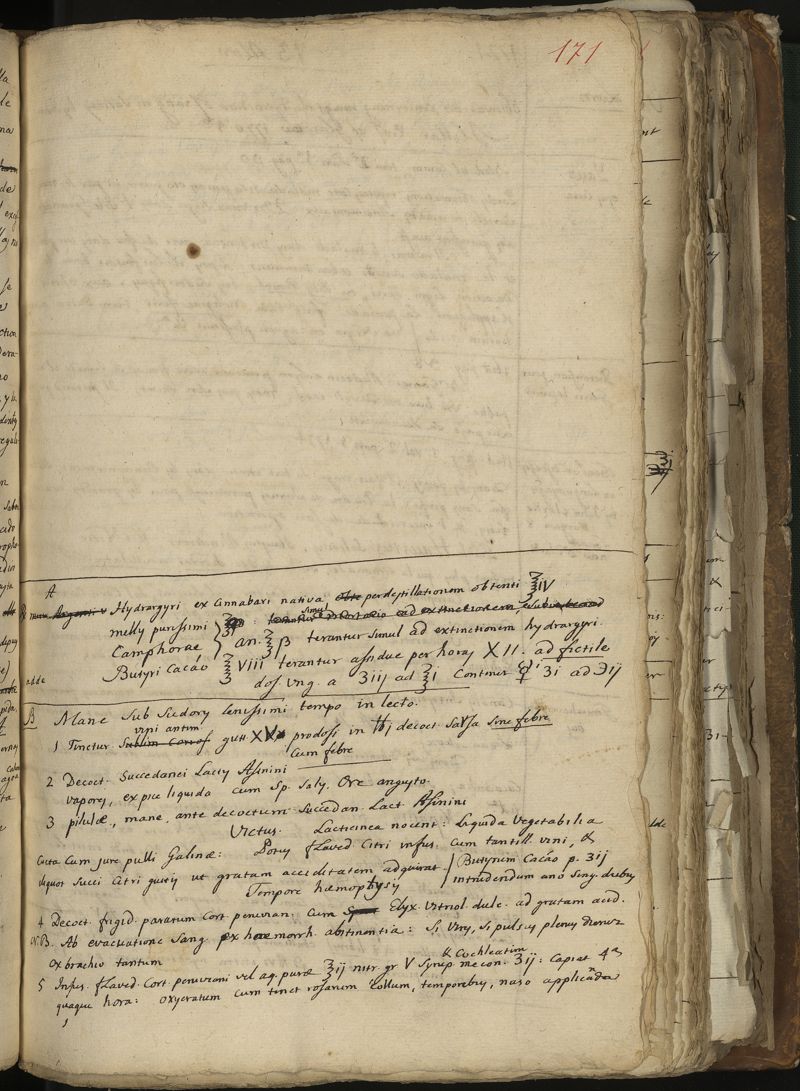 171
A
Hydrargyri ex Cinnabari nativa perdestillationem obtenti ℥IV
melly purissimi
simul
Camphorae } an. ℥ β terantur simul ad extinctionem hydrargyri
adde Butyri Cacáo ℥VIII terantur assidue per horas XII. ad fictile
dos ung. a ʒiij ad ℥i Continet ☿ ʒi ad ℈ij
B Mane Sub Sudory lenissimi tempo in lecto.
vini antim
1 Tinctur. Sublim Corros gutt. XV prodosi in ℔j decoct Salsa sine febre
Cum febre
2 Decoct. Succedanei Lacty Asinini
vapores, ex pice liquida cum Sp. Saly. Ore angusto.
3 pilulæ, mane, ante decoctum Succedan. Lact Asinini
Victus. Lacticinea nocent: Liquida Vegetabilia
Cocta Cum jure pulli Galinæ: Potus flaved Citri infus. Cum tantill. vini, &
aliquot Succi Citri guttis ut gratam acciditatem adquirat. / Butyrum Cacáo p. ʒij
Tempore hæmophtysy intrudendum ano Sing. diebus
4 Decoct. frigid. paratum Cort. peruvian: Cum Elyx. Vitriol. dulc. ad gratam acid.
N.B. Ab evacuatione Sang. ex hæmorrh. abstinentia: Si vires, Si pulsus plenus
ex brachio tantum
& Cochleatim
5 Infus. flaved. Cort. peruviani vel aq. puræ ℥ij nitr gr V Syrup. mecon. ʒij: Capiat 4ª
quaque hora: oxycratum cum tinct rosarum Collum, temporebus, naso applicanda